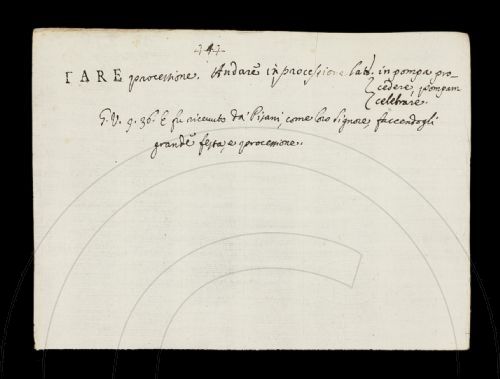 +4+
FARE processione. Andare in processione. lat. in pompa pro-
cedere, pompam
celebrare.
G. V. 9. 36. E fu ricevuto da' Pisani, come loro Signore faccendogli
grande festa, e processione.